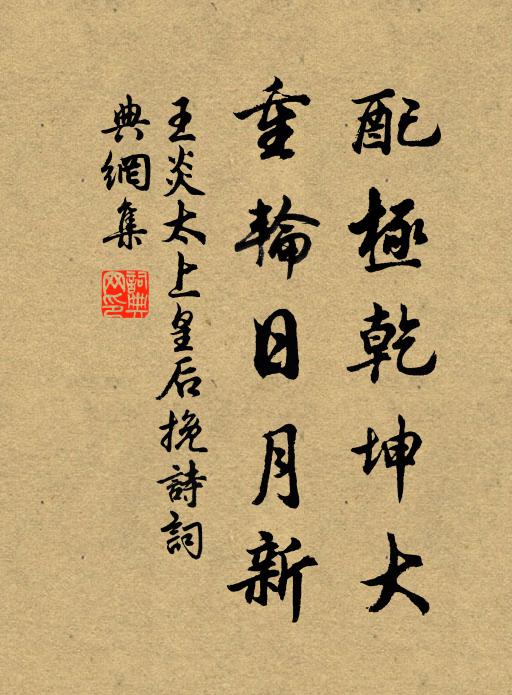 配極乾坤大
重輪日月新
王炎太上皇后挽詩詞
典網集
詞典網印